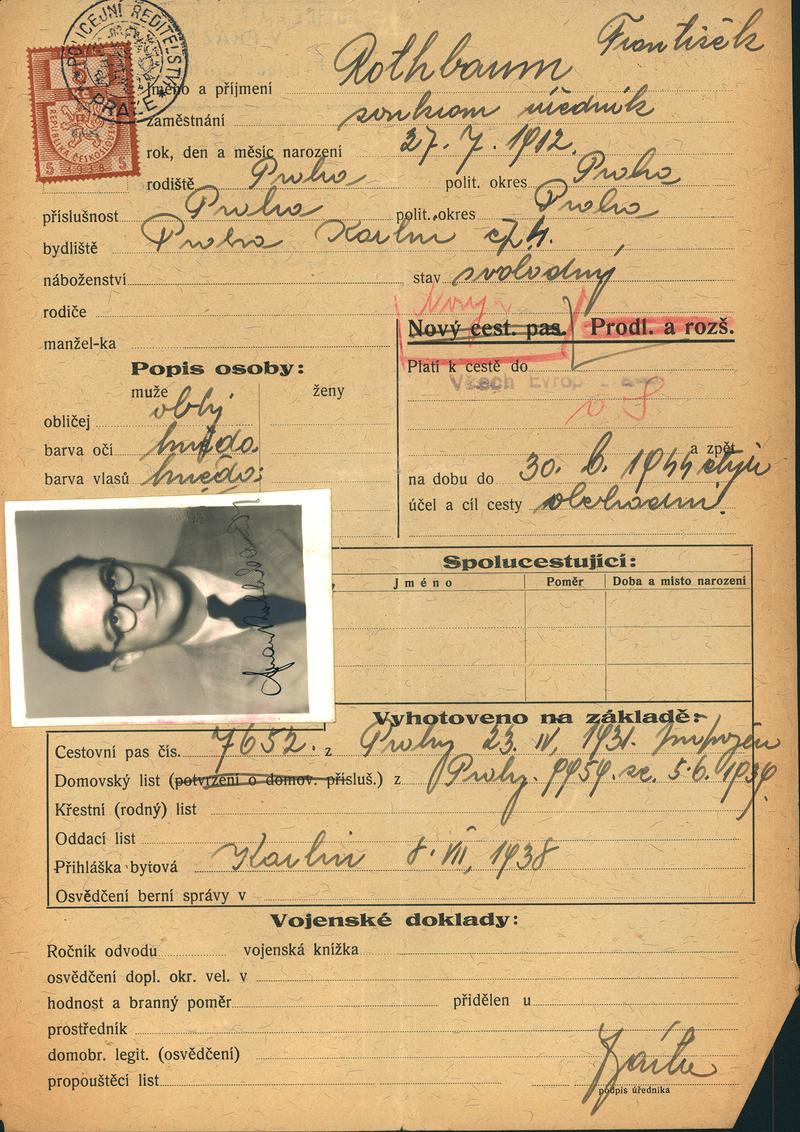 POLICEJNÍ ŘEDITELSTVÍ
V PRAZE
REPUBLIKA ČESKOSLOVENSKÁ
5 1938 5
Jméno a příjmení Rothbaum František
zaměstnání soukrom úředník
rok, den a měsíc narození 27. 7. 1912.
rodiště Praha polit. okres Praha
příslušnost Praha polit. okres Praha
bydliště Praha Karlín čp 4.
náboženství stav svobodný
rodiče
Nový
manžel-ka
Nový cest. pas. Prodl. a rozš.
Popis osoby:
Platí k cestě do
Všech Evrop
muže ženy
v S
obličej oblý
barva očí hnědo.
a zpět
barva vlasů hnědo:
na dobu do 30. 6. 1944
účel a cíl cesty obchodní
Spolucestující:
Jméno Poměr Doba a místo narození
Vyhotoveno na základě:
Cestovní pas čís. 7652. z Prahy 23. IV, 1931.
Domovský list (potvrzení o domov. přísluš.) z Prahy. 5. 6. 1939.
Křestní (rodný) list
Oddací list
Přihláška bytová Karlín 8. VII, 1938
Osvědčení berní správy v
Vojenské doklady:
Ročník odvodu vojenská knížka
osvědčení dopl. okr. vel. v
hodnost a branný poměr přidělen u
prostředník
domobr. legit. (osvědčení)
propouštěcí list
podpis úředníka